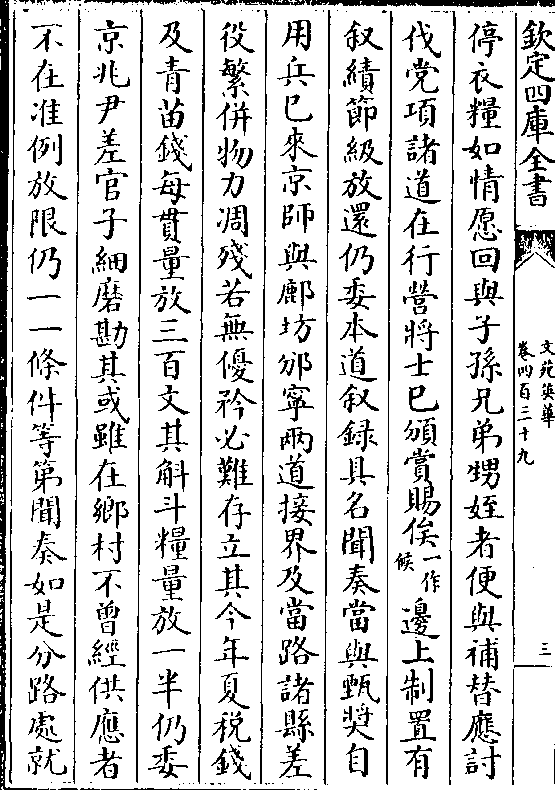 欽定四庫全書
文苑英華
卷四百三十九
三
停衣糧如情愿回與子孫兄弟甥姪者便與補替應討
伐党項諸道在行營將士已頒賞賜俟一作候邊上制置有
叙績節級放還仍委本道叙録具名聞奏當與甄奨自
用兵已來京師與鄜坊邠寧兩道接界及當路諸縣差
役繁併物力凋殘若無優矜必難存立其今年夏税錢
及青苗錢每貫量放三百文其斛斗糧量放一半仍委
京兆尹差官子細磨勘其或雖在鄉村不曾經供應者
不在准例放限仍一一條件等第聞奏如是分路處就